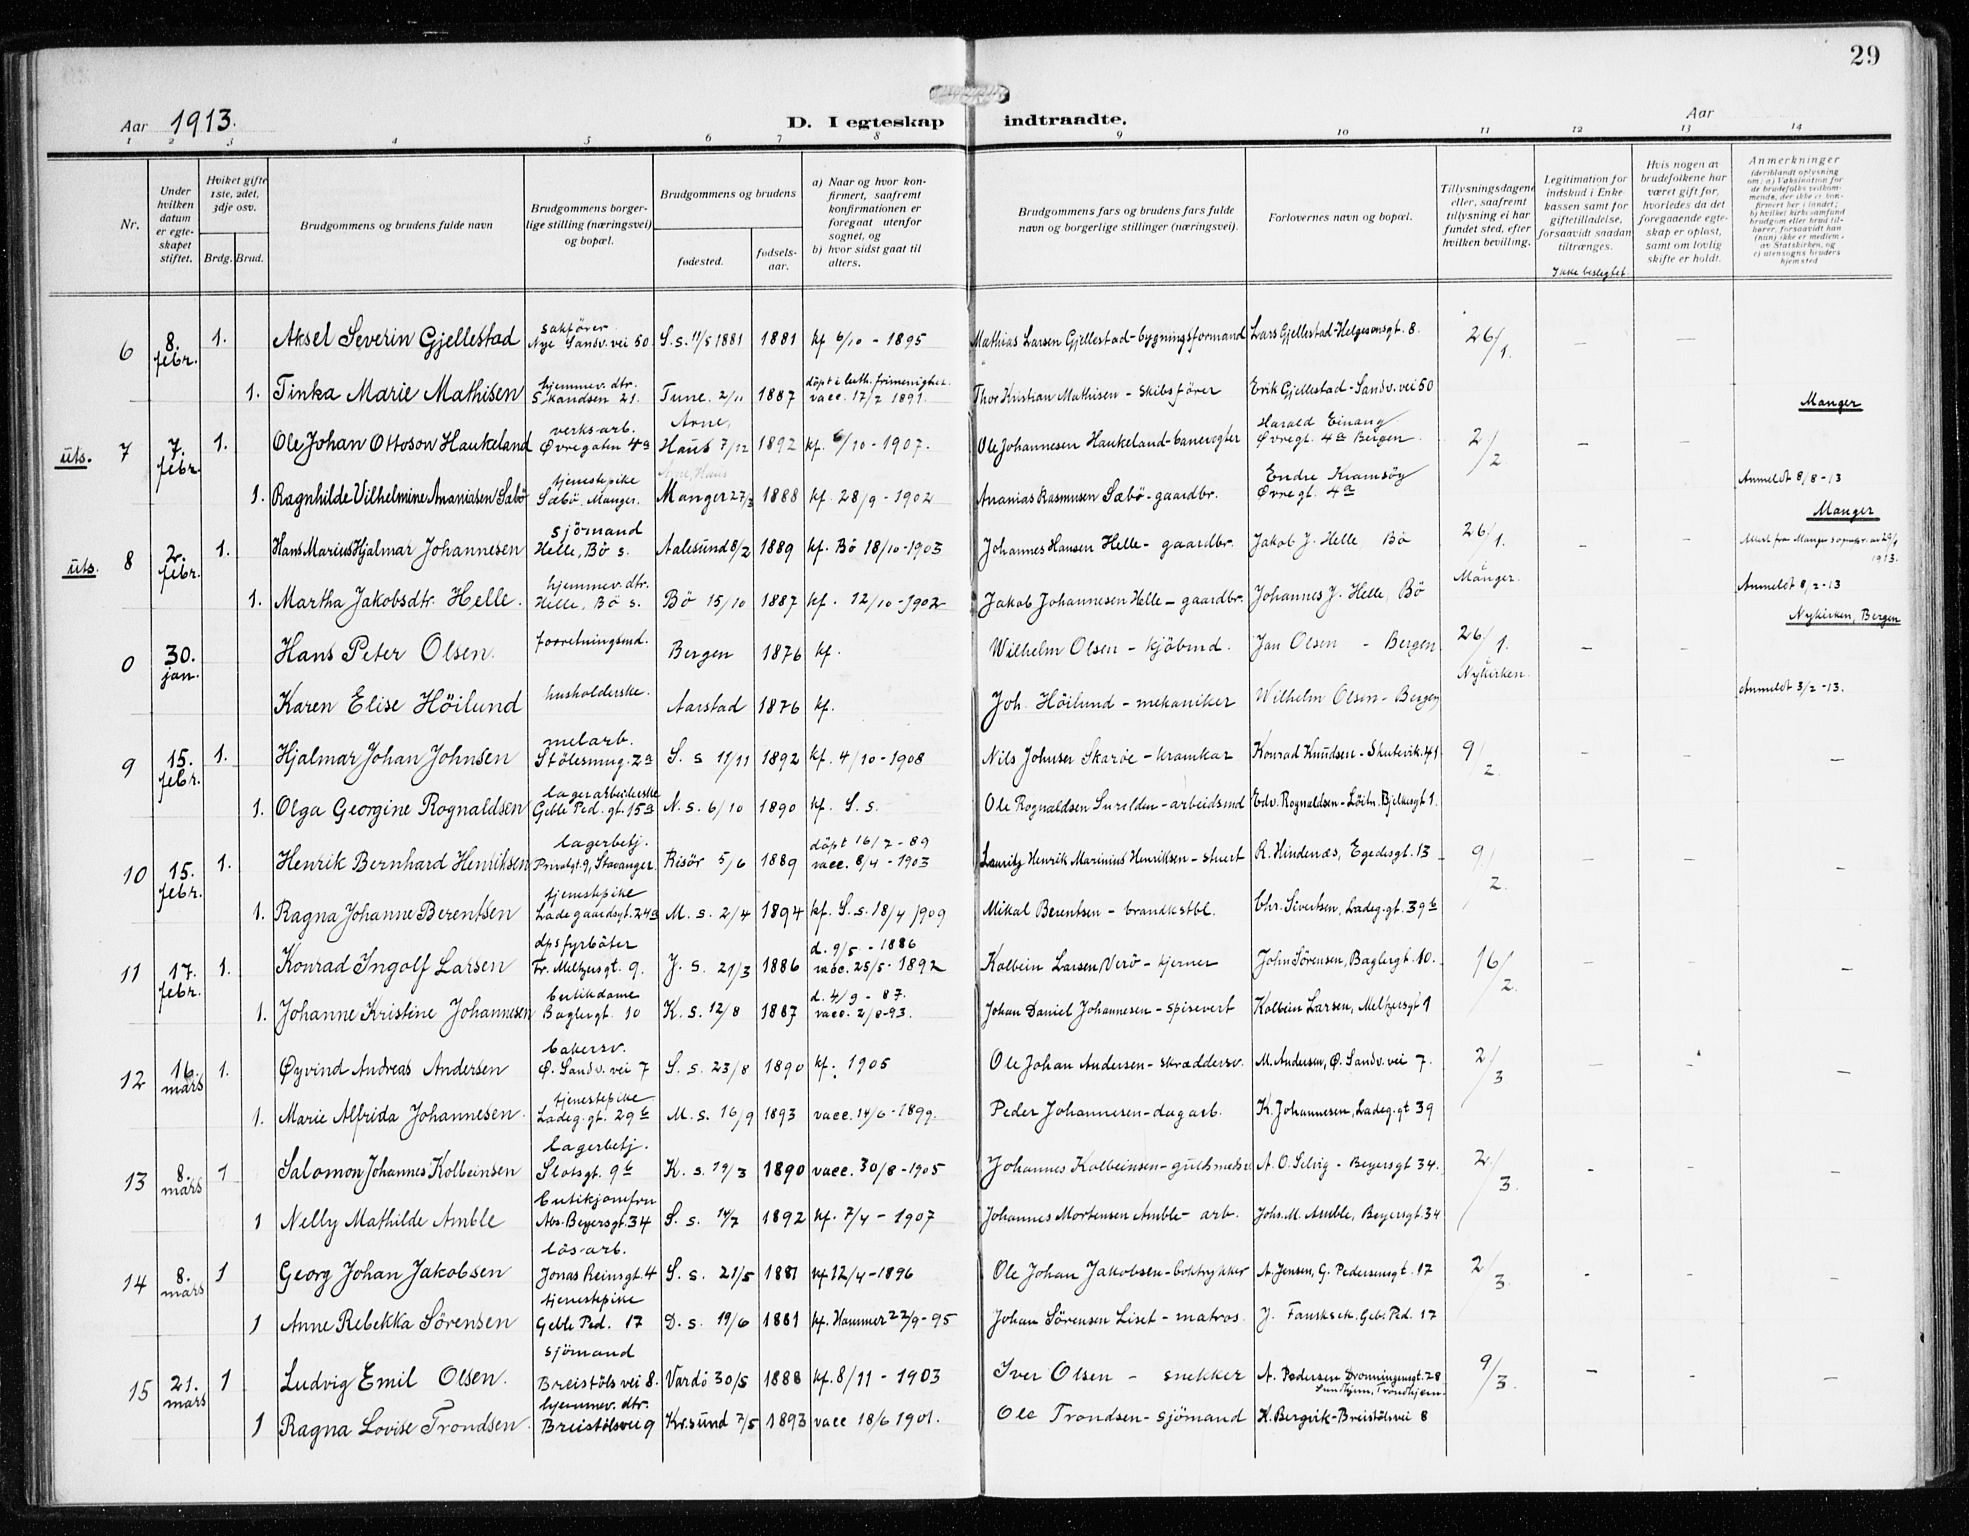 29
Aar 1913.
D. I egteskap indtraadte.
Aar
1 2 3 4 5 6 7 8 9 10 11 12 13 14
Nr.
Under hvilken datum er egteskapet stiftet.
Hviket gifte 1ste, 2det, 3dje osv.
Brdg. Brud.
Brudgommens og brudens fulde navn
Brudgommens borgerlige stilling (næringsvei) og bopæl.
Brudgommens og brudens
fødested.
fødselsaar.
a) Naar og hvor konfirmert, saafremt konfirmationen er foregaat utenfor sognet, og
b) hvor sidst gaat til alters.
Brudgommens fars og brudens fars fulde navn og borgerlige stillinger (næringsvei).
Forlovernes navn og bopæl.
Tillysningsdagene eller, saafremt tillysning ei har fundet sted, efter hvilken bevilling.
Legitimation for indskud i Enkekassen samt for giftetilladelse, forsaavidt saadan tiltrænges.
Ikke beslegtet.
Hvis nogen av brudefolkene har været gift før, hvorledes da det foregaaende egteskap er opløst, samt om lovlig skifte er holdt.
Anmerkninger (deriblandt oplysning om: a) Vaksination for de brudefolks vedkommende, der ikke er konfirmert her i landet; b) hvilket kirkesamfund brudgom eller brud tilhører, forsaavidt han (hun) ikke er medlem av Statskirken, og c) utensogns bruders hjemsted
6 8. febr. 1. Aksel Severin Gjellestad sakfører Nye Sandv. vei 50 S. s. 11/5 1881 1881 kf 6/10 - 1895 Mathias Larsen Gjellestad - bygningsformand Lars Gjellestad - Helgesensgt. 8. 26/1. - -
1. Tinka Marie Mathisen hjemmev. dtr. Skandsen 21. Tune. 2/11 1887 døpt i luth. frimenighet. vacc. 17/7 1891. Thor Kristian Mathisen - skibsfører Erik Gjellestad - Sandv. vei 50
Manger
uts. 7 7. febr. 1. Ole Johan Ottoson Haukeland verksarb. Øvregaten 4a Arne, Haus 7/12 1892 kf. 6/10 - 1907. Ole Johannesen Haukeland - banevogter Harald Einang Øvregt. 4a Bergen. 2/2 - -
1. Ragnhilde Vilhelmine Ananiasen Sæbø tjenestepike Sæbø, Manger. Arne, Haus Manger 27/3 1888 kf. 28/9 - 1902 Ananias Rasmusen Sæbø - gaardbr. Endre Kramsøy Øvregt. 4a Anmeldt 8/8 - 13
Manger
uts. 8 2. febr. 1. Hans Marius Hjalmar Johannesen sjømand Helle, Bø s. Aalesund 8/2 1889 kf. Bø 18/10 - 1903 Johannes Hansen Helle - gaardbr. Jakob J. Helle, Bø 26/1. i Manger. - -
1. Martha Jakobsdtr. Helle. hjemmev. dtr. Helle, Bø s. Bø 15/10 1887 kf. 12/10 - 1902 Jakob Johannesen Helle - gaardbr. Johannes J. Helle, Bø Anmeldt 8/2 - 13
Nykirken, Bergen
0 30. jan. Hans Peter Olsen. forretningsmd. Bergen 1876 kf. Wilhelm Olsen - kjøbmd. Jan Olsen - Bergen 26/1. i Nykirken. - -
Karen Elise Höilund husholderske. Aarstad 1876 kf. Joh. Höilund - mekaniker Wilhelm Olsen - Bergen Anmeldt 3/2 - 13.
9 15. febr. 1. Hjalmar Johan Johnsen melarb. Stölesmug. 2a S. s 11/11 1892 kf. 4/10 - 1908 Nils Johnsen Skaröe - kramkar Konrad Knudsen - Skutevik. 41 9/2. - - -
1. Olga Georgine Rognaldsen lagerarbeiderske Geble Ped. gt. 15a N. s. 6/10 1890 kf. S. s. Ole Rognaldsen - arbeidsmd Edv. Rognaldsen - Løitn. Bjelkesgt 1.
10 15. febr. 1. Henrik Bernhard Henriksen lagerbetj. Privatgt. 9, Stavanger Risör 5/6 1889 döpt 16/7 - 89 vacc. 8/4 - 1903 Lauritz Henrik Marinius Henriksen - stuert R. Hindenæs, Egedesgt. 13 9/2. - - -
1. Ragna Johanne Berentsen tjenestepike Ladegaardsgt. 24a M. s. 2/4 1894 kf. S. s. 18/4 1909 Mikal Berentsen - brandkstbl. Chr. Sivertsen, Ladeg. gt. 39b
11 17. febr. 1. Konrad Ingolf Larsen dpsfyrböter Fr. Meltzersgt. 9. J. s. 21/3 1886 d. 9/5 - 1886 vacc. 25/5 - 1892 Kolbein Larsen Verö - kjerner John Sörensen, Baglergt. 10. 16/2. - - -
1. Johanne Kristine Johannesen butikdame Baglergt. 10 K. s. 12/8 1887 d. 4/9 - 87. vacc. 2/8 - 93. Johan Daniel Johannesen - spisevert Kolbein Larsen, Meltzersgt 9
12 16. mars 1. Øyvind Andreas Andersen bakersv. Ø. Sandv. vei 7 S. s. 23/8 1890 kf. 1905 Ole Johan Andersen - skræddersv. M. Andersen, Ø. Sandv. vei 7. 2/3 - - -
1. Marie Alfrida Johannesen. tjenestepike Ladeg. gt. 29b M. s. 16/9 1893 vacc. 14/6 - 1899. Peder Johannesen - dagarb. K. Johannesen, Ladeg. gt 39
13 8. mars 1 Salomon Johannes Kolbeinsen lagerbetj. Slotsgt. 9b K. s. 19/3 1890 vacc. 30/8 - 1905 Johannes Kolbeinsen - guldsmedsv A. O. Selvig - Beyersgt 34. 2/3. - - -
1 Nelly Mathilde Amble butikjomfru Abs. Beyersgt. 34 S. s. 14/7 1892 kf. 7/4 - 1907 Johannes Mortensen Amble - arb. Johs. M. Amble, Beyersgt. 34
14 8. mars 1 Georg Johan Jakobsen løsarb. Jonas Reinsgt. 4 S. s. 21/5 1881 kf 12/4 - 1896 Ole Johan Jakobsen - boktrykker A. Jensen, G. Pedersensgt. 17 2/3 - - -
1 Anne Rebekka Sörensen tjenestepike Geble Ped. 17 D. s. 19/6 1881 kf. Hammer 22/9 - 95 Johan Sörensen Liset - matros. J. Geb. Ped. 17
15 21. mars 1 Ludvig Emil Olsen. sjömand Breistöls vei 8. Vardö 30/5 1888 kf. 8/11 - 1903 Iver Olsen - snekker A. Pedersen Dronningensgt. 28 Trondhjem. 9/3. - - -
1 Ragna Lovise Trondsen. hjemmev. dtr. Breistölsvei 9 Kr.sund 7/5 1893 vacc 18/6 1901. Ole Trondsen - sjömand K. Bergvik - Breistölsvei 8